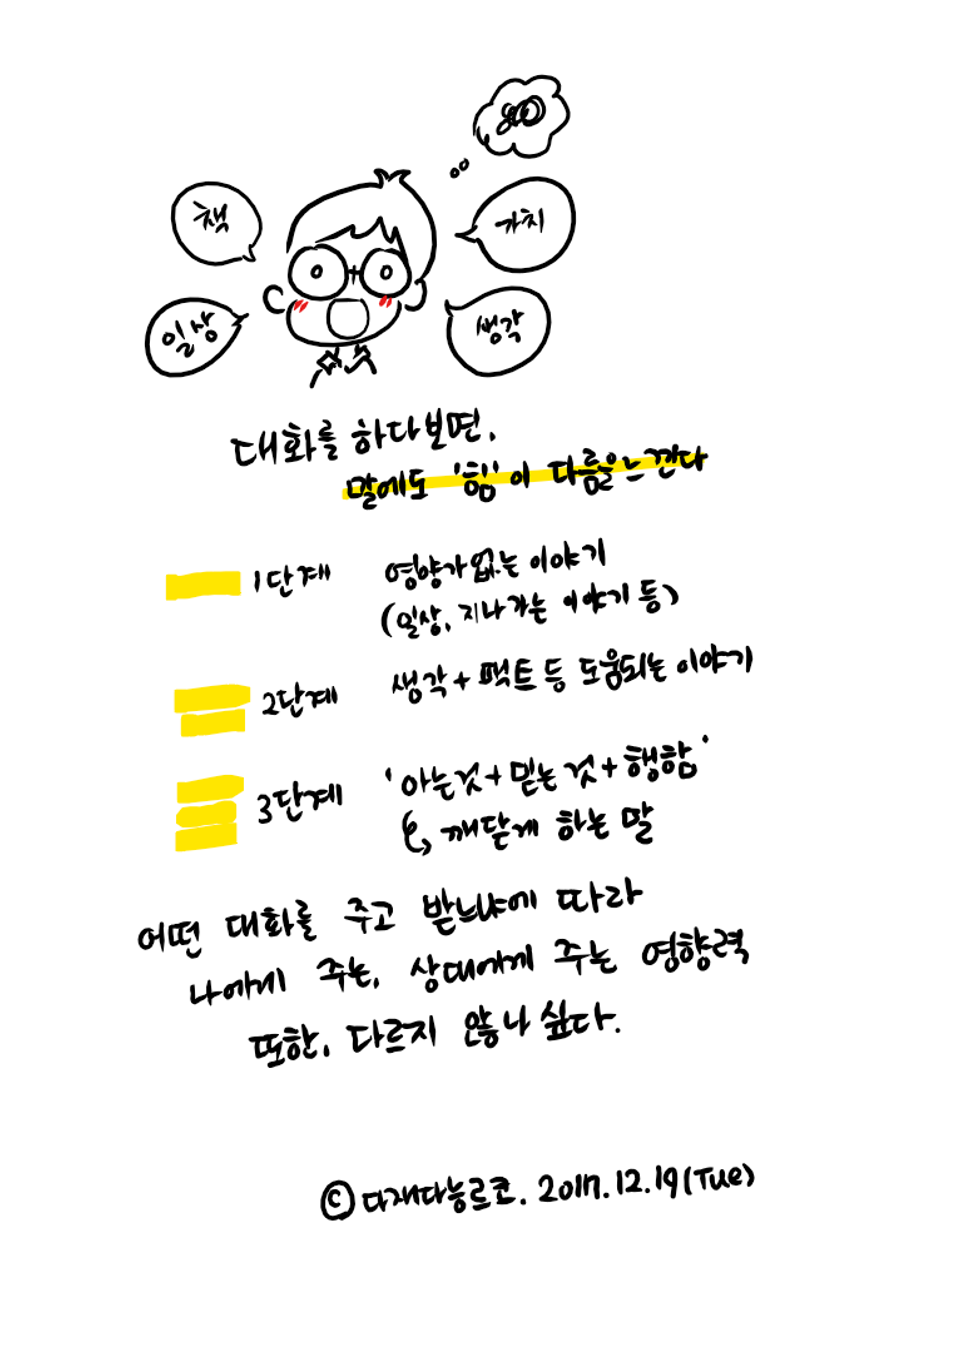 책
가치
일상
생각
대화를 하다보면,
말에도 '힘'이 다름을 느낀다
1단계 영양가 없는 이야기
(일상, 지나가는 이야기 등)
2단계 생각 + 팩트 등 도움되는 이야기
3단계 '아는것 + 믿는 것 + 행함'
깨닫게 하는 말
어떤 대화를 주고 받느냐에 따라
나에게 주는, 상대에게 주는 영향력
또한, 다르지 않나 싶다.
© 다재다능르코. 2017.12.19(Tue)